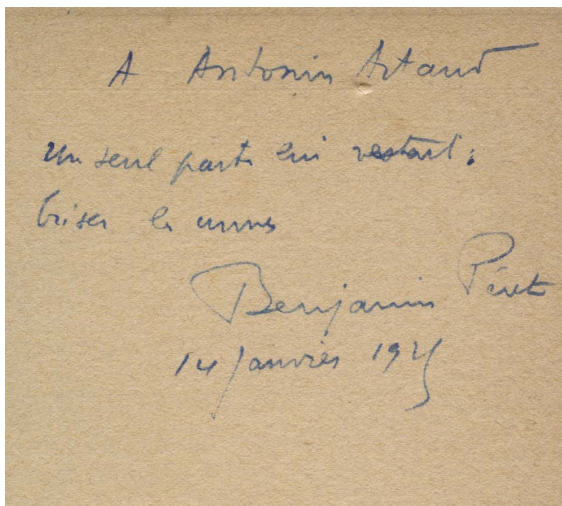 A Antonin Artaud
un seul parti lui restait :
briser les murs
Benjamin Péret
14 Janvier 1925